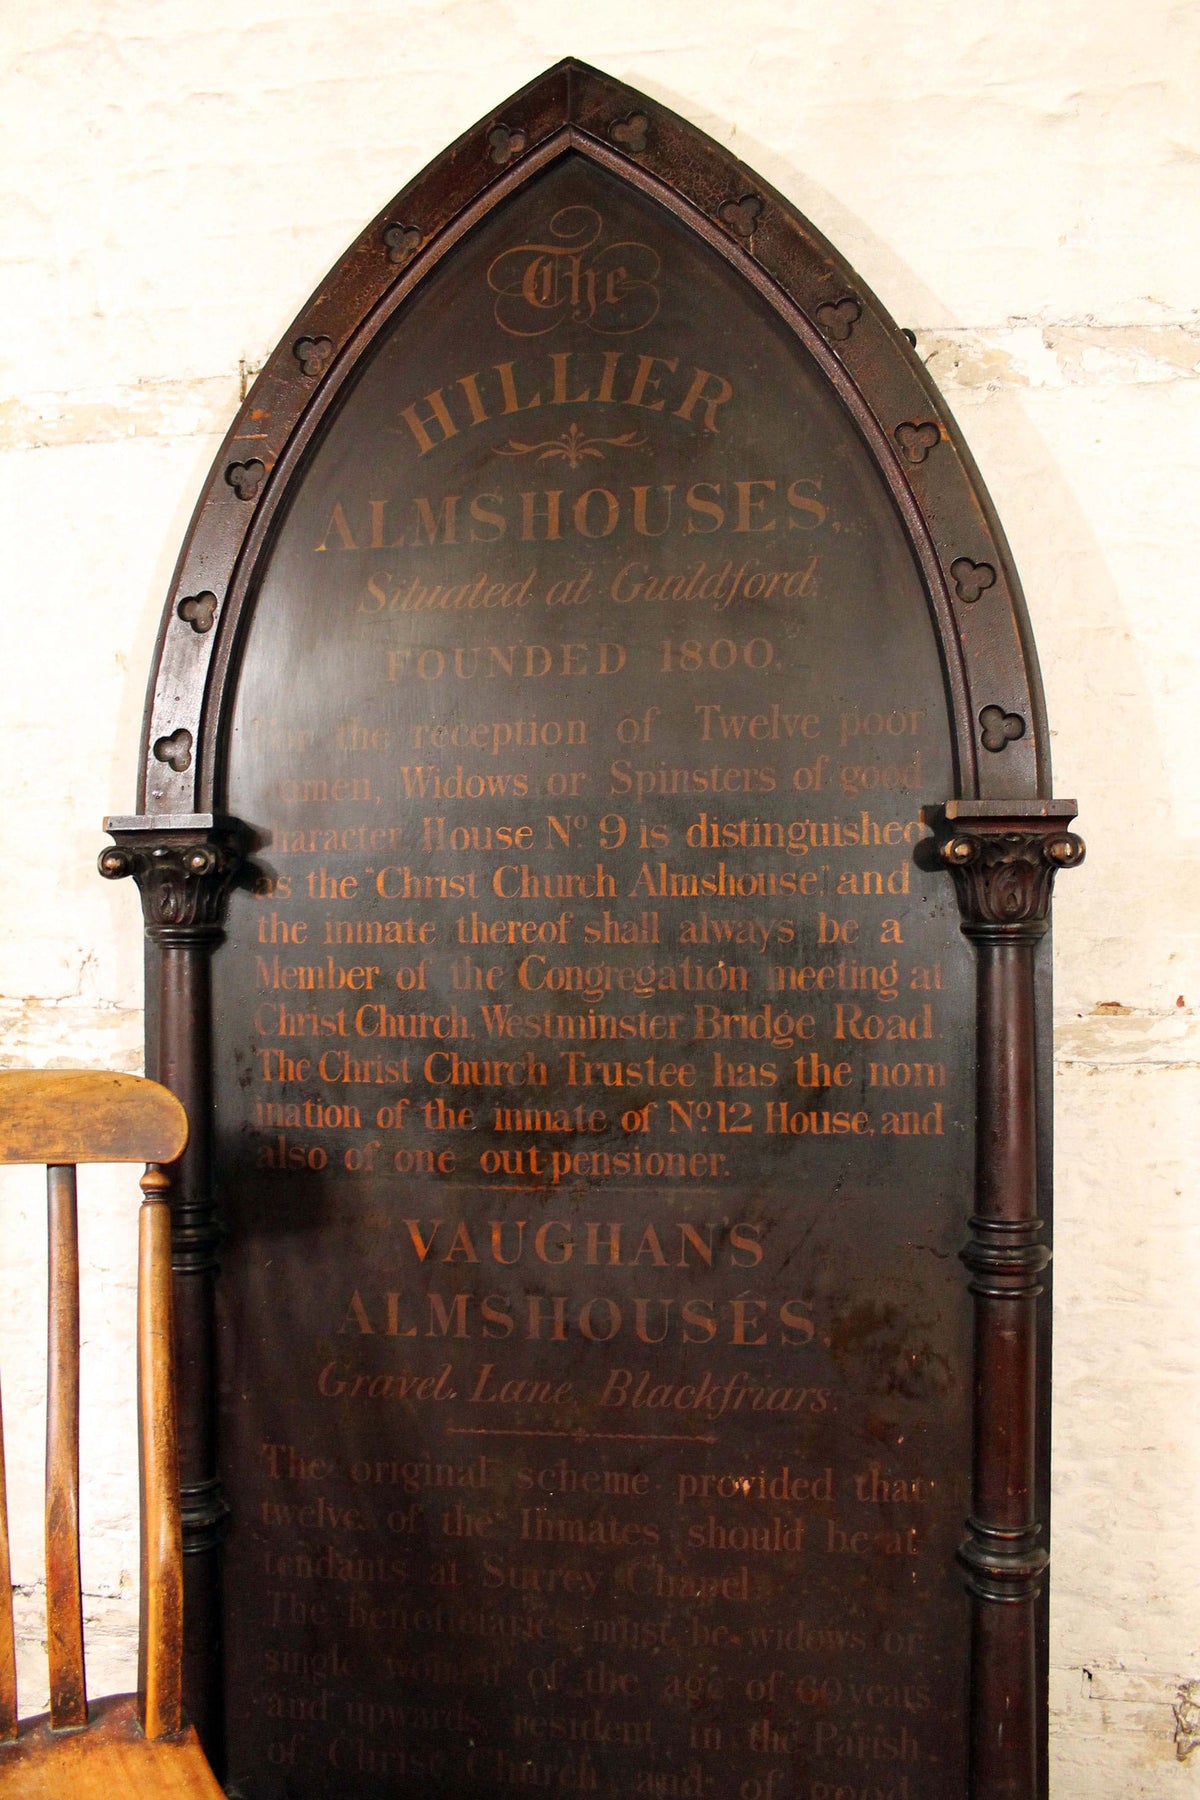 The
HILLIER
ALMSHOUSES,
Situated at Guildford.
FOUNDED 1800,
For the reception of Twelve poor
women, Widows or Spinsters of good
character. House No. 9 is distinguished
as the "Christ Church Almshouse," and
the inmate thereof shall always be a
Member of the Congregation meeting at
Christ Church, Westminster Bridge Road.
The Christ Church Trustee has the nom
ination of the inmate of No. 12 House, and
also of one out-pensioner.
VAUGHAN'S
ALMSHOUSES.
Gravel Lane, Blackfriars.
The original scheme provided that
twelve of the Inmates should be at
tendants at Surrey Chapel.
The beneficiaries must be widows or
single women of the age of 60 years
and upwards, resident in the Parish
of Christ Church and of good